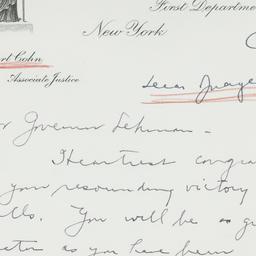 First Departme
New York
rt Cohn
Associate Justice
r Governor Lehman -
Heartiest congra
your resounding victory
lls. You will be as g
ator as you have been